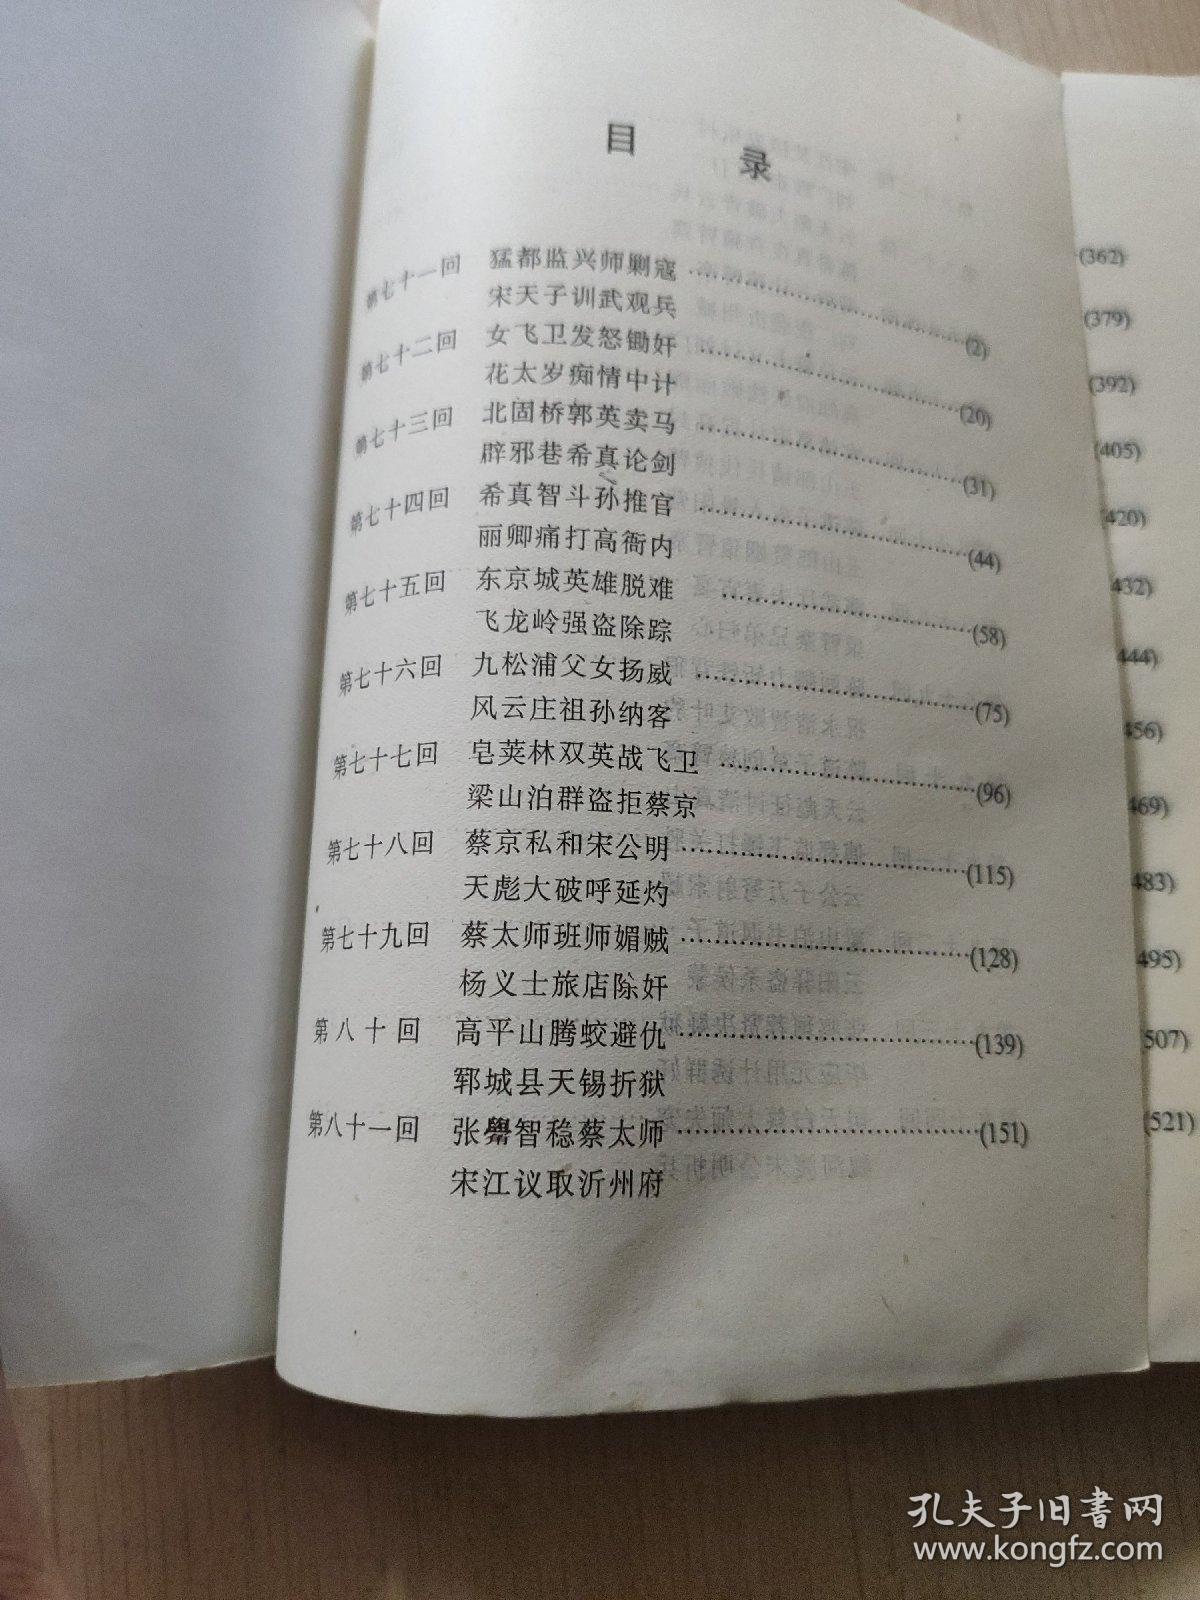 目 录
第七十一回 猛都监兴师剿寇
宋天子训武观兵 ……(2)
第七十二回 女飞卫发怒锄奸
花太岁痴情中计 ……(20)
第七十三回 北固桥郭英卖马
辟邪巷希真论剑 ……(31)
第七十四回 希真智斗孙推官
丽卿痛打高衙内 ……(44)
第七十五回 东京城英雄脱难
飞龙岭强盗除踪 ……(58)
第七十六回 九松浦父女扬威
风云庄祖孙纳客 ……(75)
第七十七回 皂荚林双英战飞卫
梁山泊群盗拒蔡京 ……(96)
第七十八回 蔡京私和宋公明 ……(115)
天彪大破呼延灼
第七十九回 蔡太师班师媚贼 ……(128)
杨义士旅店除奸
第八十回 高平山腾蛟避仇 ……(139)
郓城县天锡折狱
第八十一回 张觷智稳蔡太师 ……(151)
宋江议取沂州府
(362)
(379)
(392)
(405)
(420)
432)
444)
456)
469)
483)
495)
507)
521)
孔夫子旧书网
www.kongfz.com